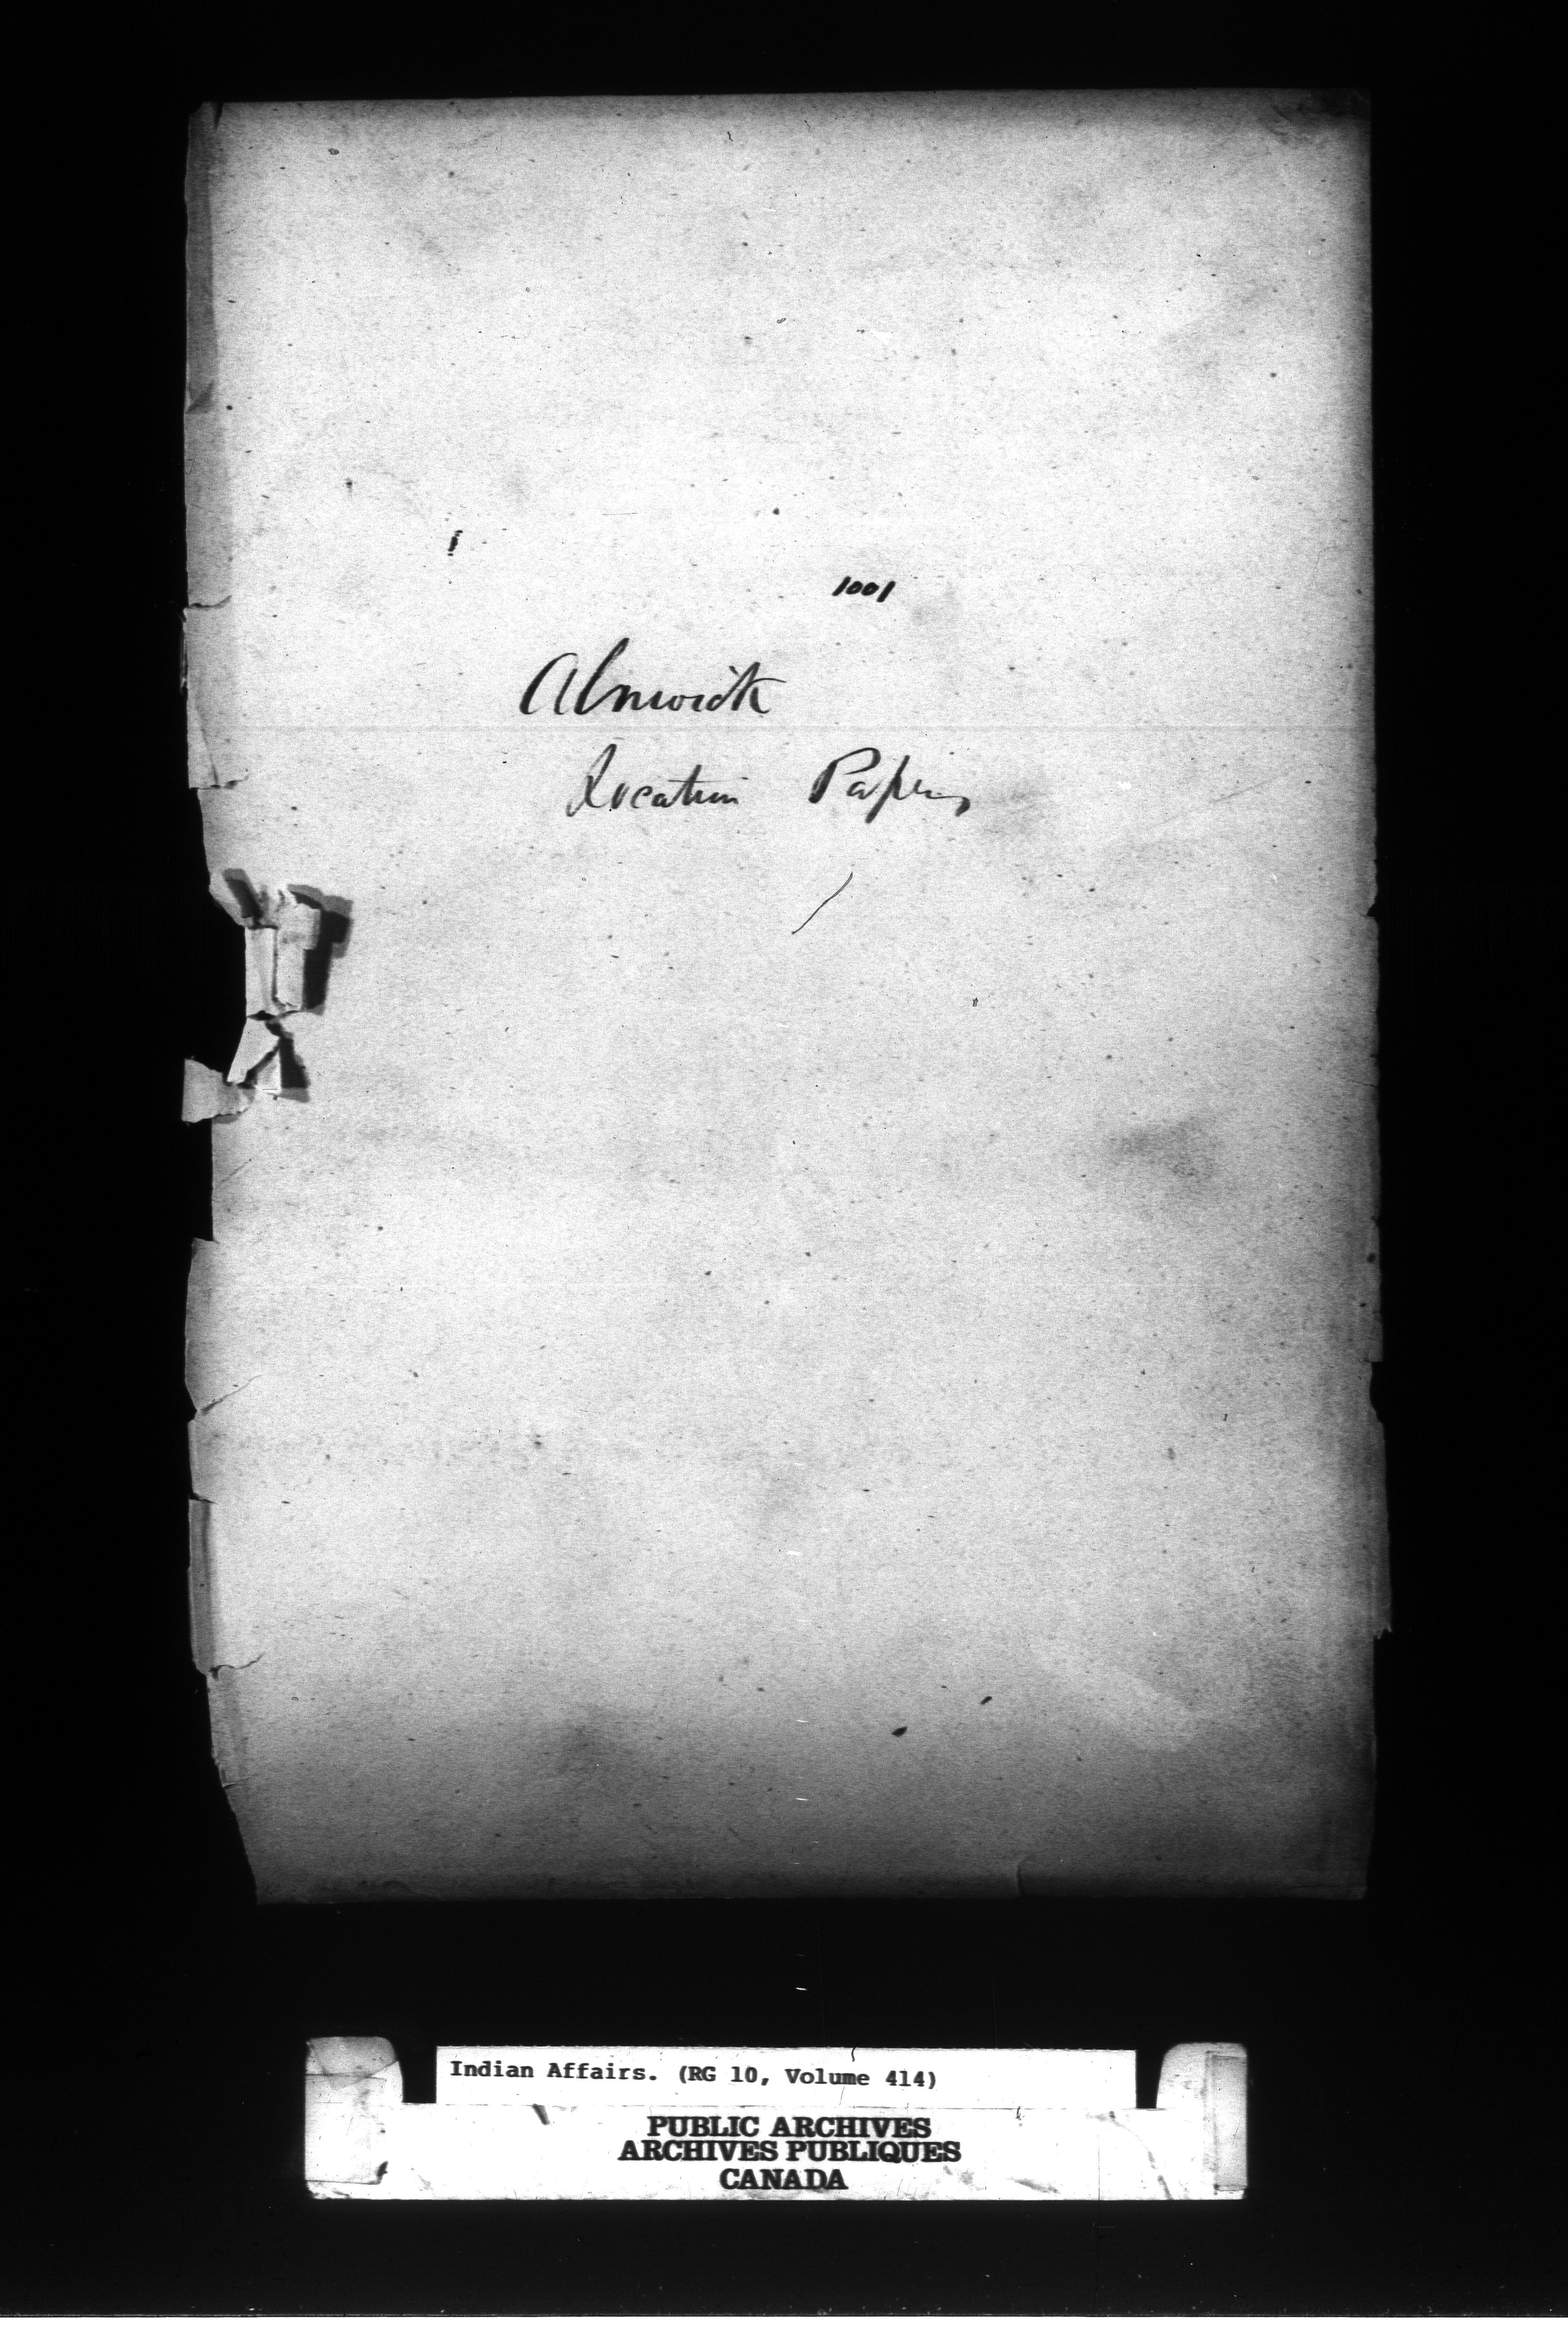 1001
Alnwick
Location Papers
Indian Affairs. (RG 10, Volume 414)
PUBLIC ARCHIVES
ARCHIVES PUBLIQUES
CANADA